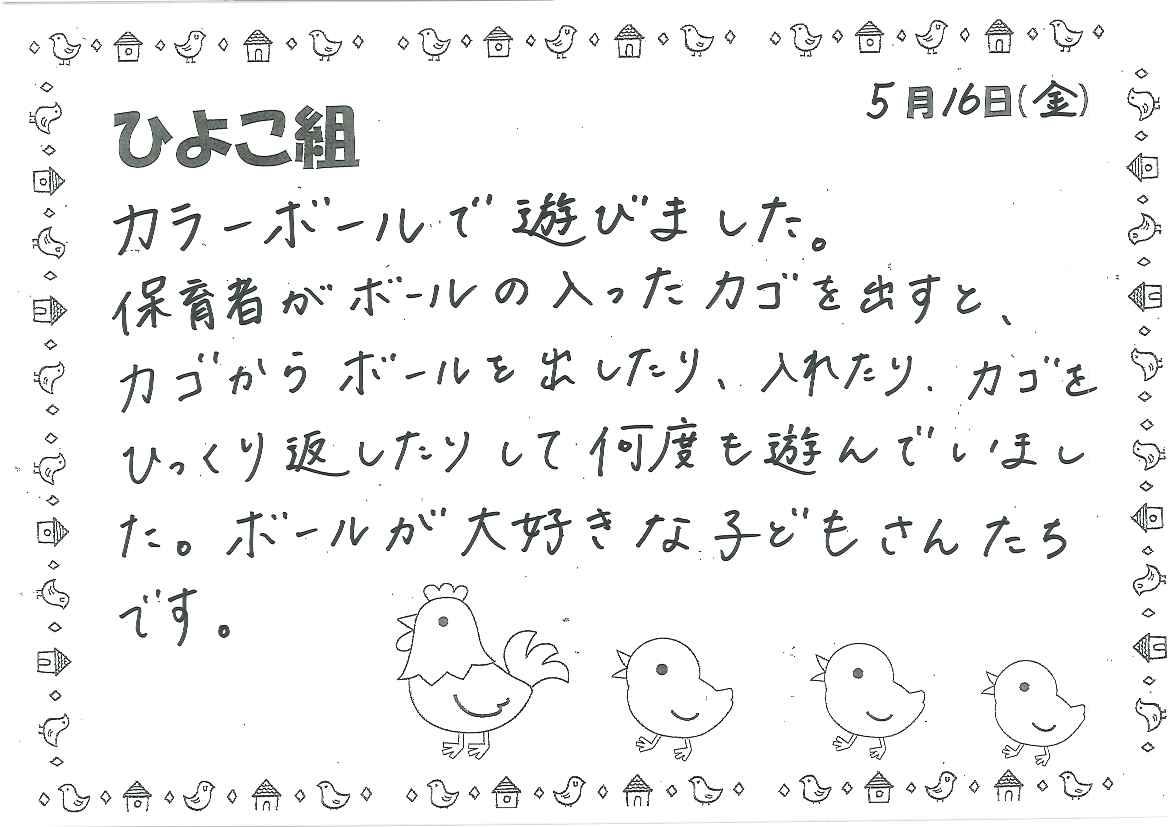 5月16日(金)
ひよこ組
カラーボールで遊びました。
保育者がボールの入ったカゴを出すと、
カゴからボールを出したり、入れたり、カゴを
ひっくり返したりして何度も遊んでいまし
た。ボールが大好きな子どもさんたち
です。